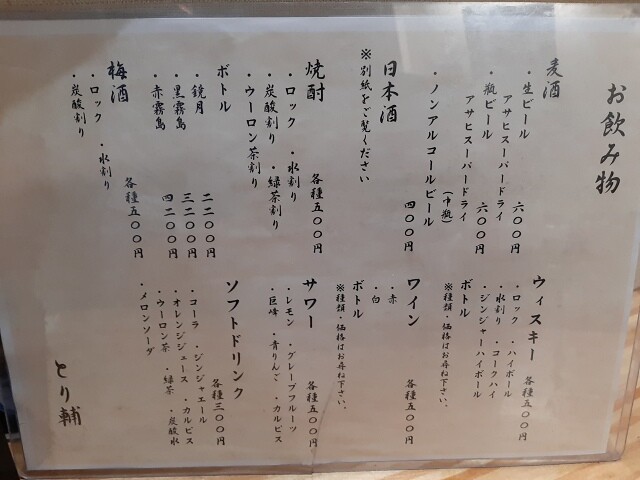 お飲み物
麦酒
・生ビール
アサヒスーパードライ
六〇〇円
・瓶ビール
アサヒスーパードライ
六〇〇円
(中瓶)
・ノンアルコールビール
四〇〇円
日本酒
※別紙をご覧ください
焼酎
各種五〇〇円
・ロック ・水割り
・炭酸割り ・緑茶割り
・ウーロン茶割り
ボトル
・鏡月 二二〇〇円
・黒霧島 三二〇〇円
・赤霧島 四二〇〇円
梅酒
各種五〇〇円
・ロック ・水割り
・炭酸割り
ウィスキー
各種五〇〇円
・ロック ・ハイボール
・水割り ・コークハイ
・ジンジャーハイボール
ボトル
※種類・価格はお尋ね下さい。
ワイン
各種五〇〇円
・赤
・白
ボトル
※種類・価格はお尋ね下さい。
サワー
各種五〇〇円
・レモン ・グレープフルーツ
・巨峰 ・青りんご ・カルピス
ソフトドリンク
各種三〇〇円
・コーラ ・ジンジャエール
・オレンジジュース ・カルピス
・ウーロン茶 ・緑茶 ・炭酸水
・メロンソーダ
とり輔